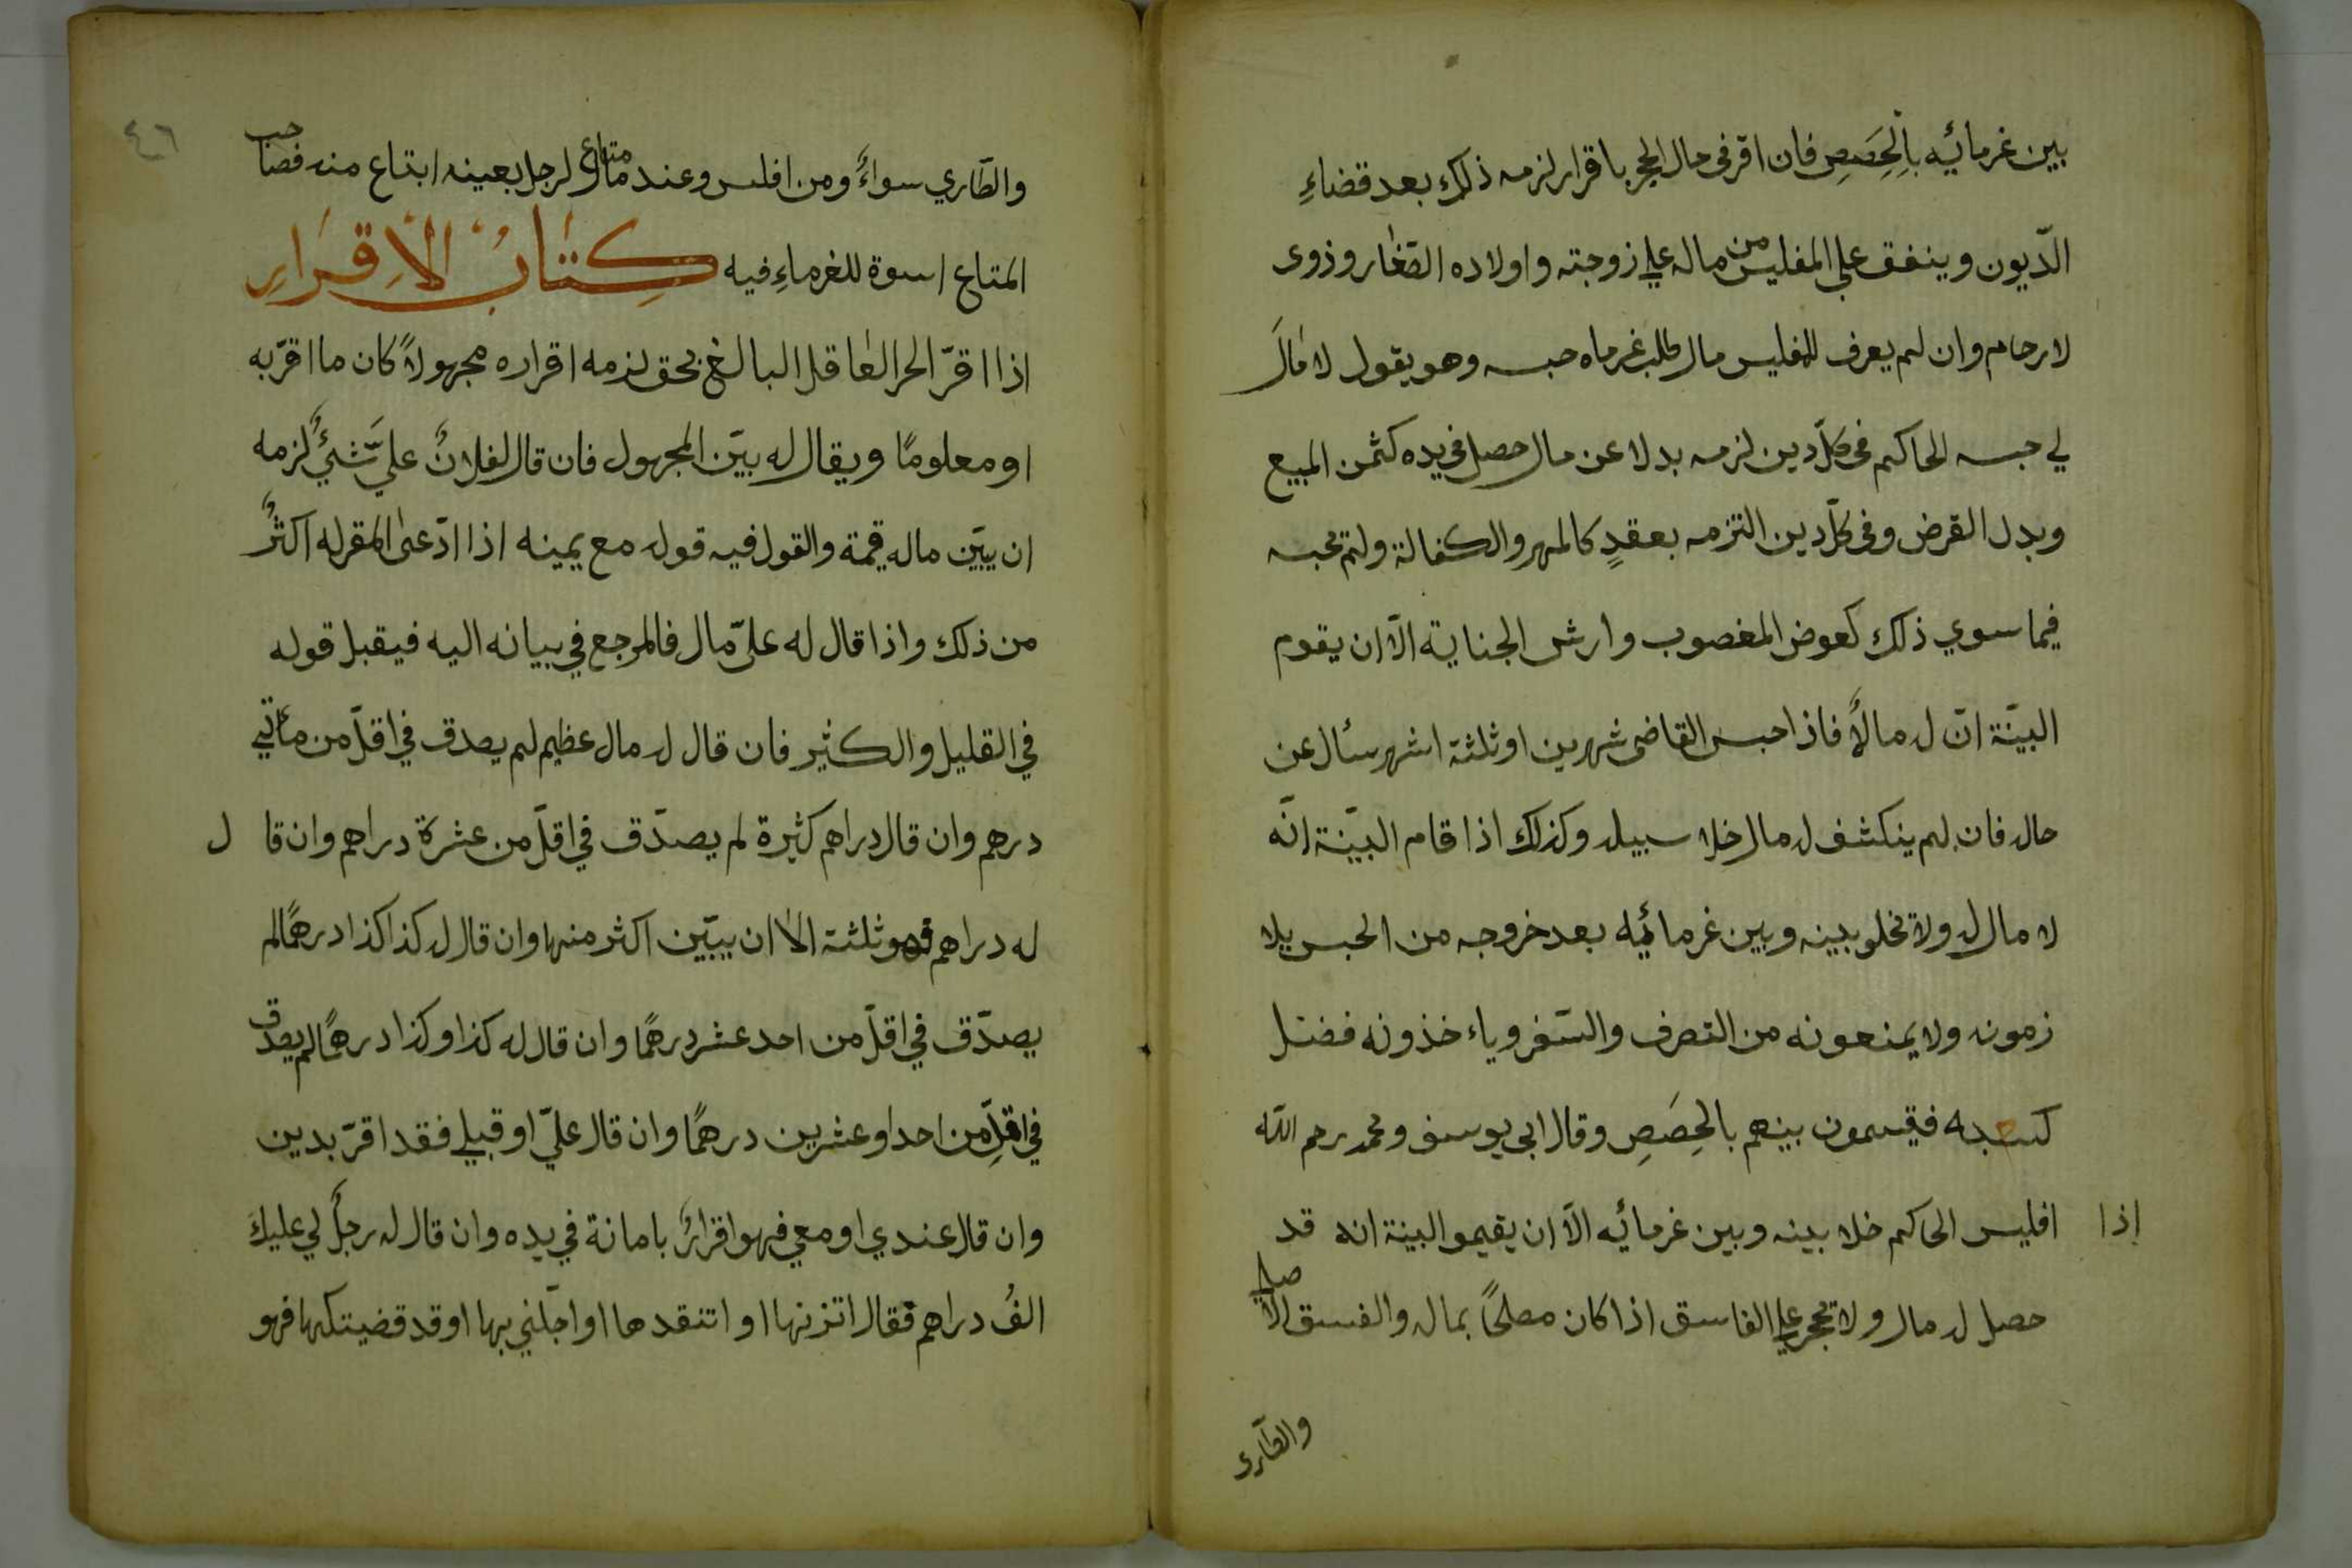 بين غرمائيه بالحِصَصِ فان اقر فى مال الحجر باقرار لزمه ذلك بعد قضاءِ
الدّيون وينفق علي المفليس من ماله علي زوجته واولاده الصّغار وذوى
لارحام وان لم يعرف للمفليس مال طلب غرماه حبسه وهو يقول لا مالَ
لي حبسه الحاكم فى كلّ دين لزمه بدلا عن مال حصل فى يده كثمن المبيع
وبدل القرض وفى كلّ دين التزمه بعقدٍ كالمهر والكفالة ولم يحبسه
فيما سوي ذلك كعوض المغصوب وارش الجناية الّا ان يقوم
البيّنة انّ له مالاً فاذا حبس القاضى شهرين او ثلثة اشهر سئال عن
حاله فان لم ينكشف له مال خلا سبيله وكذلك اذا قام البيّنة انّه
لا مال له ولا يخلو بينه وبين غرمائيه بعد خروجه من الحبس يلا
زمونه ولا يمنعونه من التصرف والسّفر وياءخذونه فضل
كسبه فيقسمون بينهم بالحِصَصِ وقال ابى يوسف ومحمد رحم اللّه
إذا افليس الحاكم خلا بينه وبين غرمائيه الّا ان يقيمو البينة انه قد
حصل له مال ولا يحجر علي الفاسق اذا كان مصلحًا بماله والفسق الاصلي
والطّارى
٤٦
والطّاري سواءٌ ومن افلس وعند مال متاع لرجل بعينه ابتاع منه فصاحب
المتاع اسوة للغرماءِ فيه كِتَابُ الاِقرَارِ
اذا اقرّ الحر العاقل البالغ بحق لزمه اقراره مجهولاً كان ما اقرّ به
او معلومًا ويقال له بيّن المجهول فان قال لفلانٌ عليَّ شئٌ لزمه
ان يبيّن ماله قيمة والقول فيه قوله مع يمينه اذا ادّعى المقر له اكثرُ
من ذلك واذا قال له علىّ مال فالمرجع في بيانه اليه فيقبل قوله
في القليل والكثير فان قال له مال عظيم لم يصدق في اقلّ من مأتي
درهم وان قال دراهم كثيرة لم يصدّق في اقلّ من عشرة دراهم وان قا ل
له دراهم فهو ثلثة الا ان يبيّن اكثر منها وان قال له كذا كذا درهمًا لم
يصدّق في اقلّ من احد عشر درهمًا وان قال له كذا وكذا درهمًا لم يصدق
في اقلّ من احد او عشرين درهمًا وان قال عليّ او قبلي فقد اقرّ بدين
وان قال عندي او معي فهو اقرارٌ بامانة في يده وان قال له رجلٌ لي عليكَ
الفُ دراهم فقال اتزنها او اتنقدها او اجّلني بها او قد قضيتكها فهو